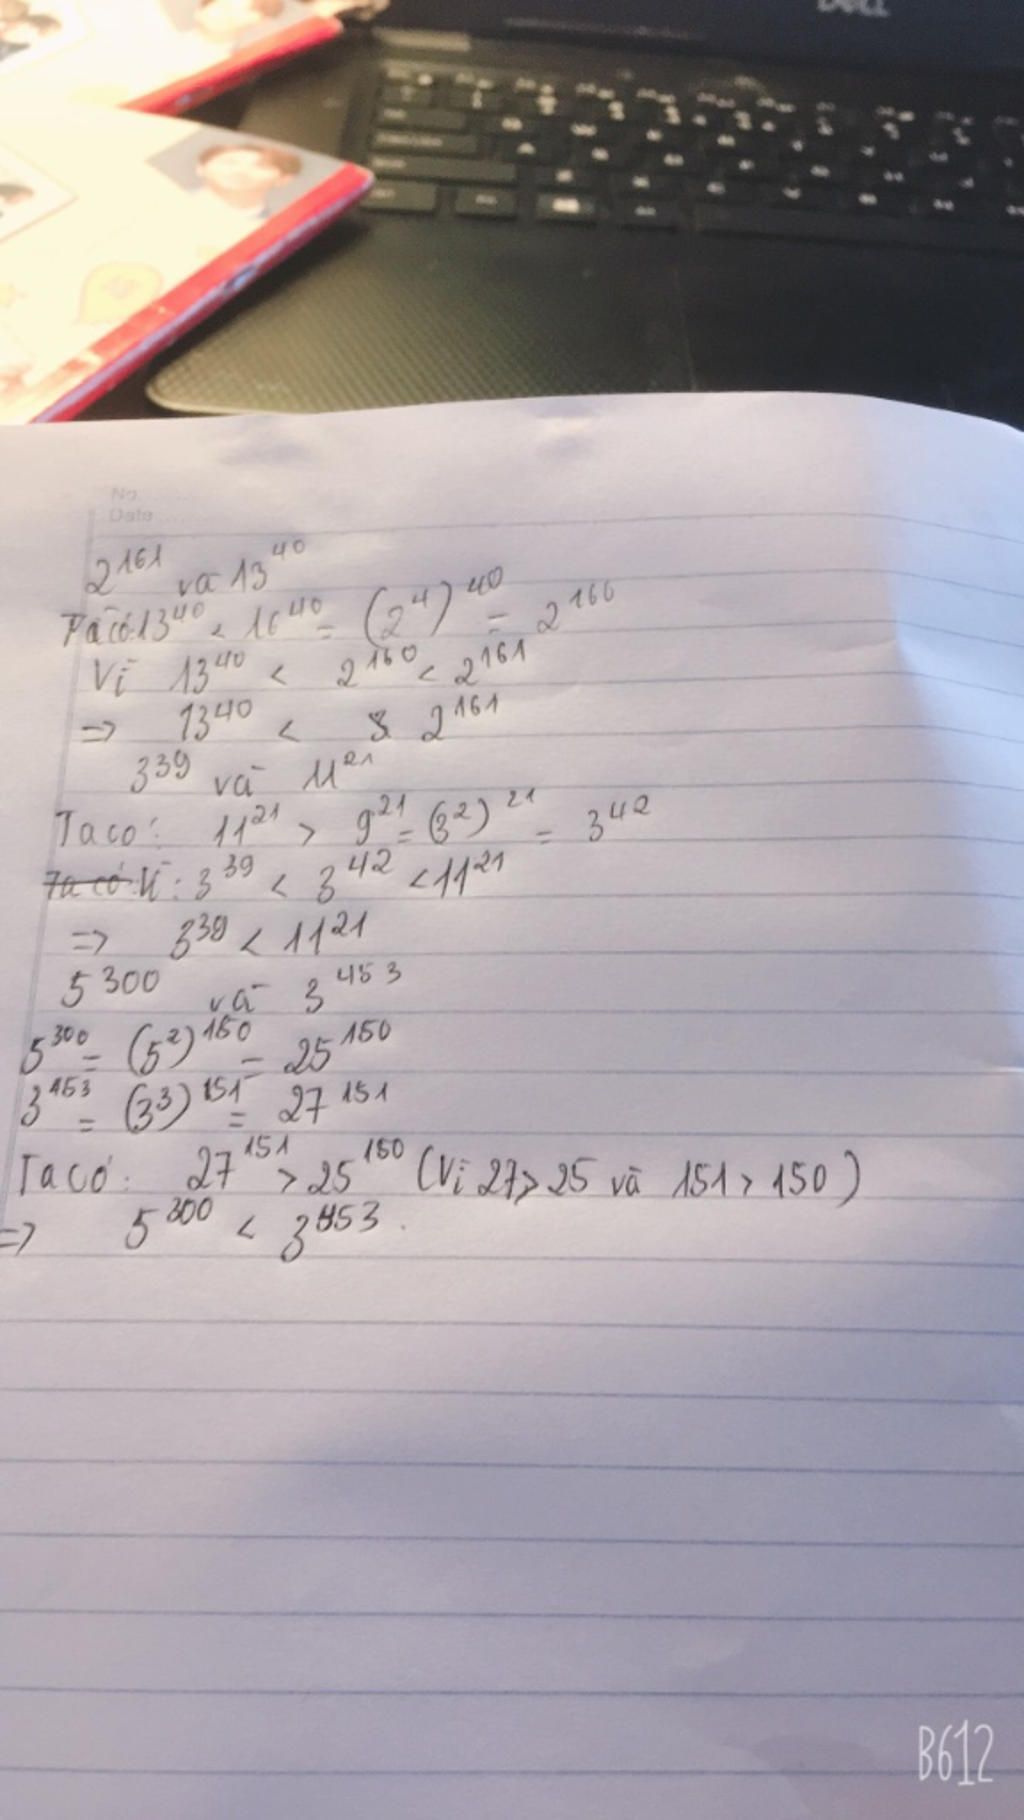 DELL
No.
Date
2¹⁶¹ và 13⁴⁰
Ta có: 13⁴⁰ < 16⁴⁰ = (2⁴)⁴⁰ = 2¹⁶⁰
Vì 13⁴⁰ < 2¹⁶⁰ < 2¹⁶¹
=> 13⁴⁰ < 2¹⁶¹
3³⁹ và 11²¹
Ta có: 11²¹ > 9²¹ = (3²)²¹ = 3⁴²
Ta có Vì: 3³⁹ < 3⁴² < 11²¹
=> 3³⁹ < 11²¹
5³⁰⁰ và 3⁴⁵³
5³⁰⁰ = (5²)¹⁵⁰ = 25¹⁵⁰
3⁴⁵³ = (3³)¹⁵¹ = 27¹⁵¹
Ta có: 27¹⁵¹ > 25¹⁵⁰ (Vì 27 > 25 và 151 > 150)
=> 5³⁰⁰ < 3⁴⁵³.
B612